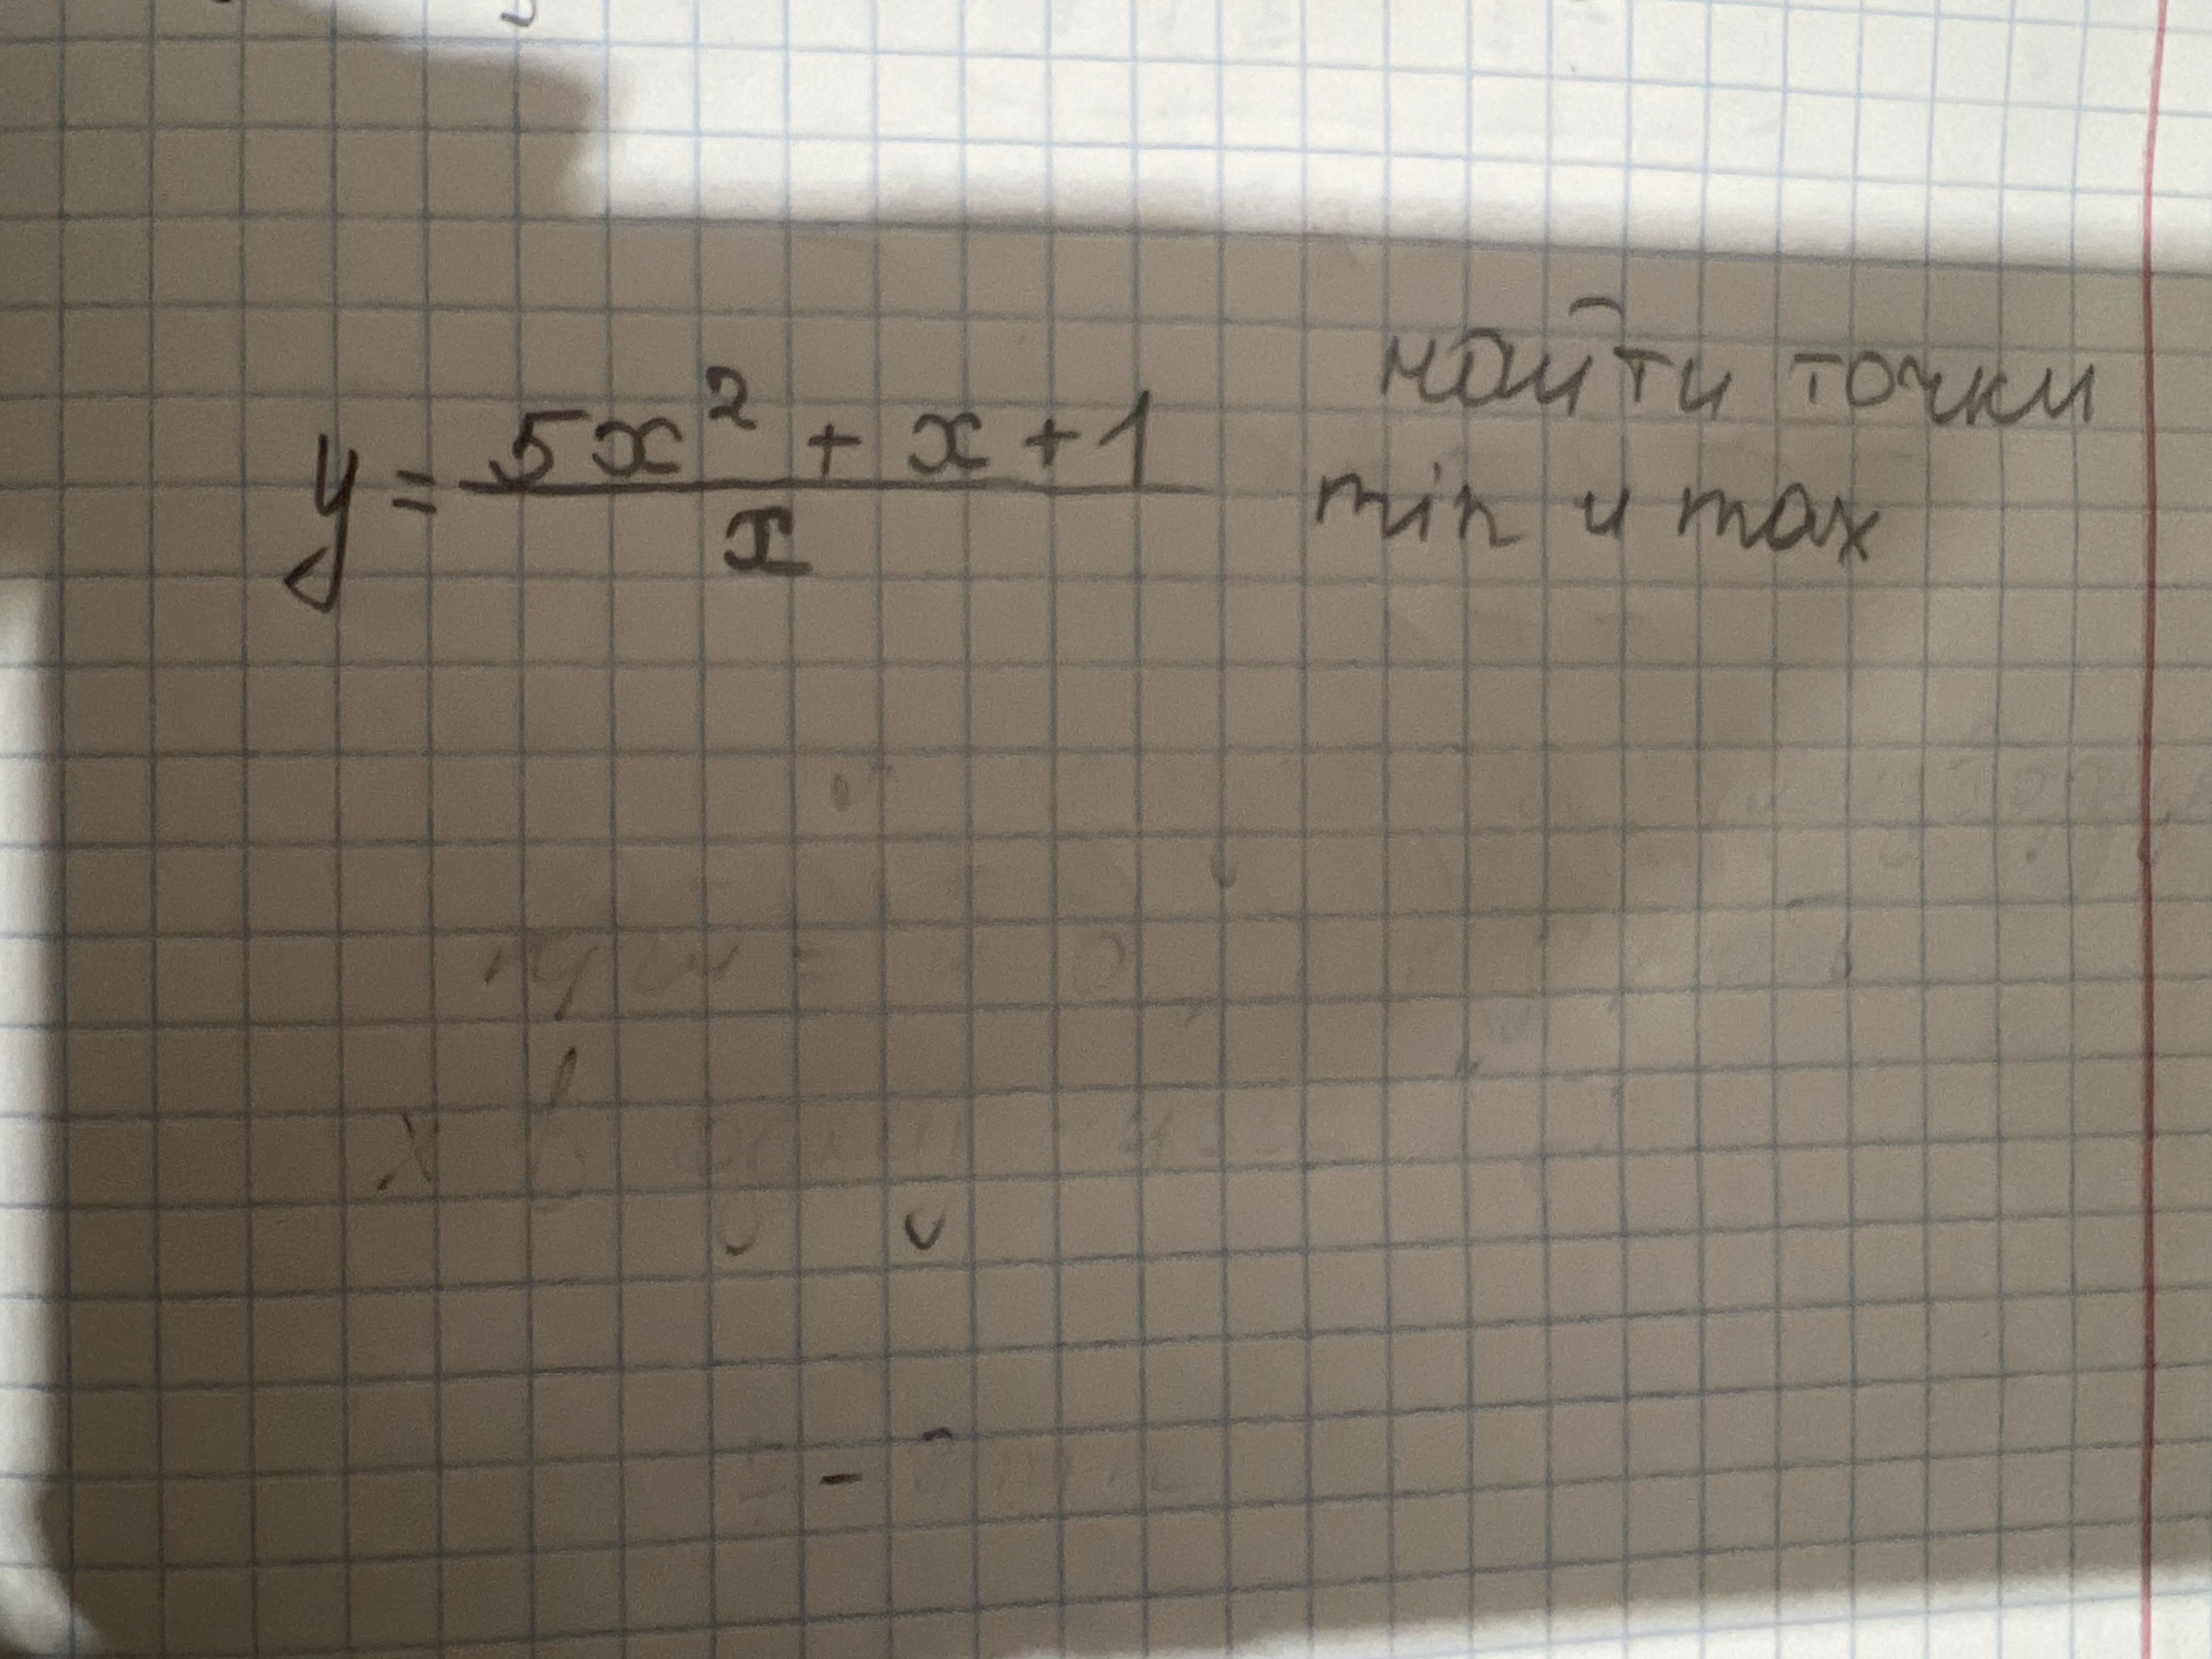 y = (5x² + x + 1) / x
найти точки
min и max